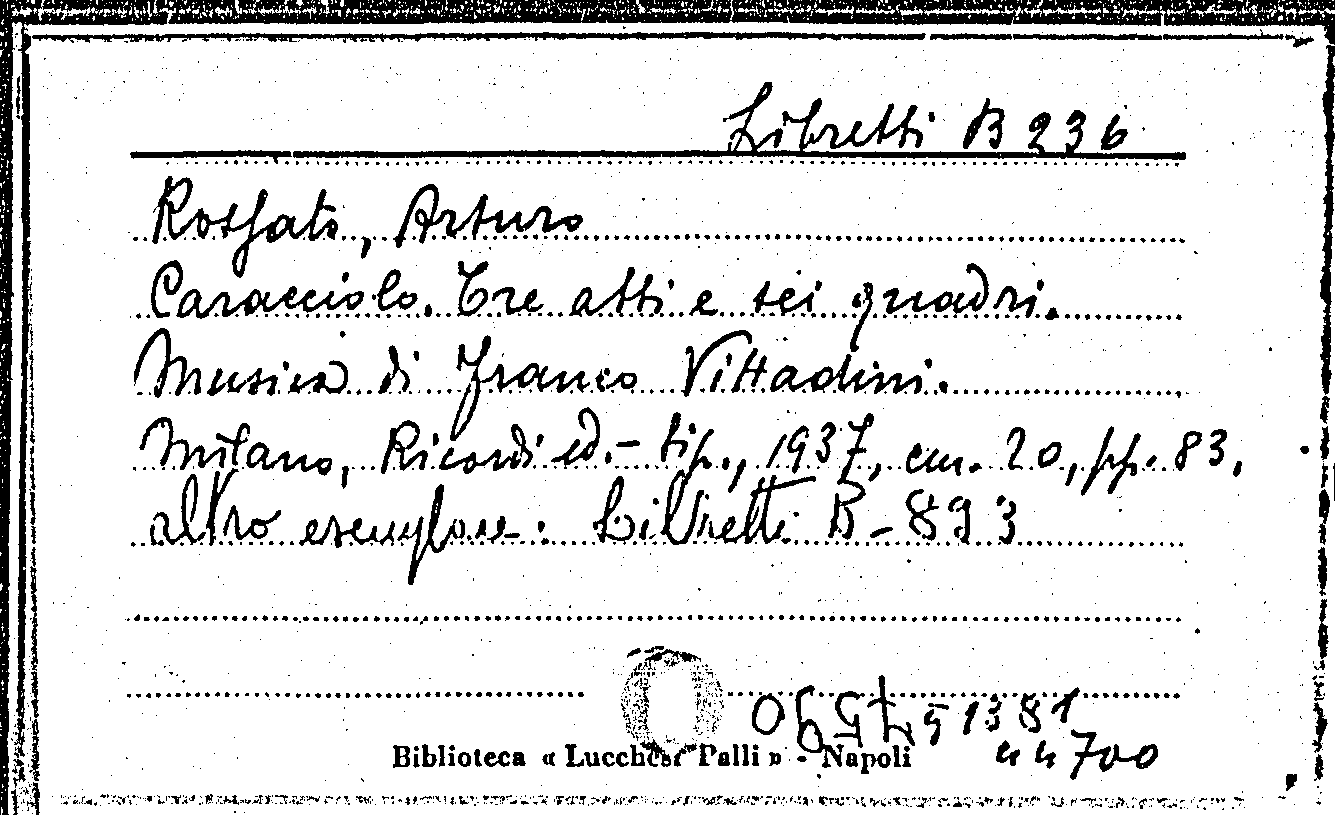 Libretti B 236
Rossato, Arturo
Caracciolo. Tre atti e sei quadri.
Musica di Franco Vittadini.
Milano, Ricordi ed.- tip., 1937, cm. 20, pp. 83.
altro esemplare: Libretti B-893
51381
44700
Biblioteca « Lucchesi Palli » - Napoli